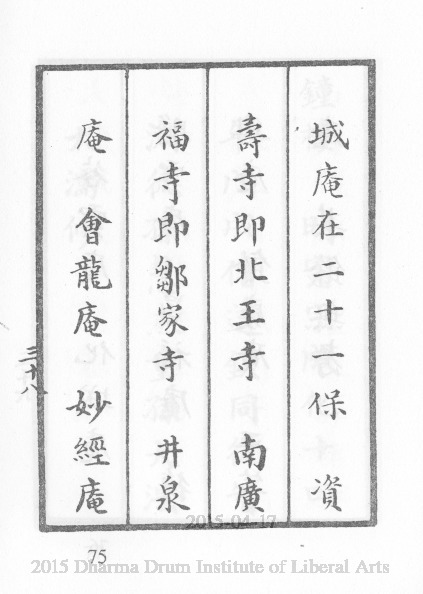 城庵在二十一保 資
壽寺即北王寺 南廣
福寺即鄒家寺 井泉
庵 會龍庵 妙經庵
三十八
75
2015-04-17
2015 Dharma Drum Institute of Liberal Arts